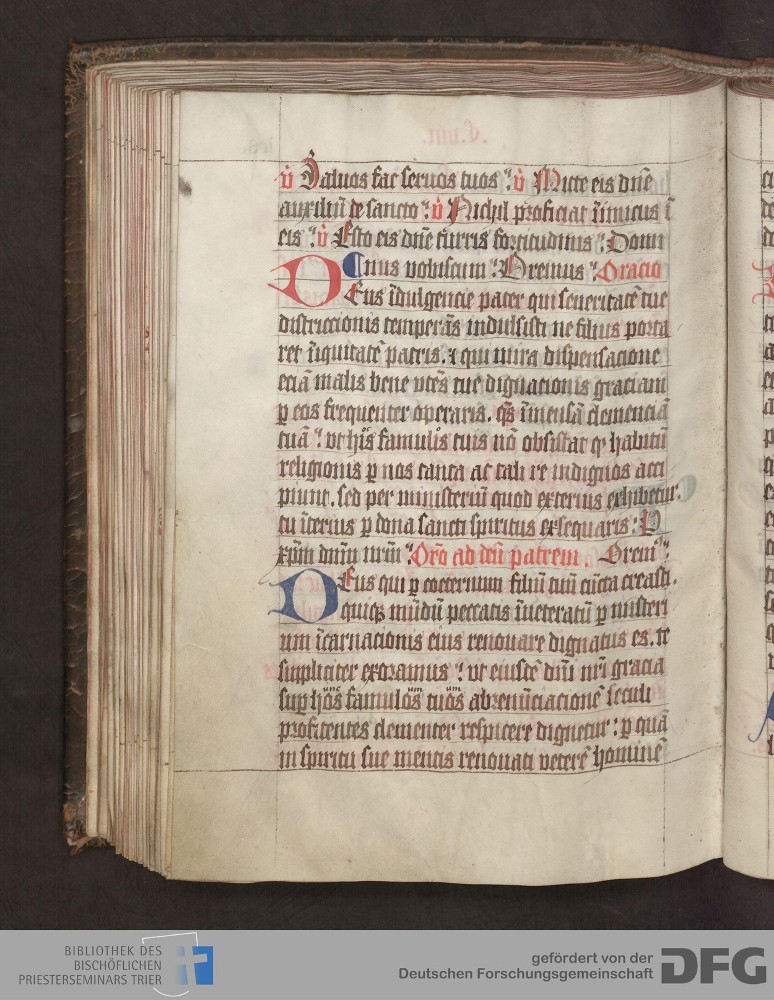 v̇ Saluos fac seruos tuos : v̇ Mitte eis dn̄e
auxiliū de sancto : v̇ Nichil proficiat īimicus ī
eis : v̇ Esto eis dn̄e turris fortitudinis : Domi
nus vobiscum : Oremus : Oracio
Deus īdulgencie pater qui seueritatē tue
districcionis temperās indulsisti ne filius porta
ret īiquitatē patris. ⁊ qui mira dispensacione
eciā malis bene vtēs tue dignacionis graciam
ꝑ eos frequenter operaris. qs̄ īmensā clemenciā
tuā : vt hiis famulis tuis nō obsistat ꝙ habitū
religionis ꝑ nos tanta ac tali re indignos acci
piunt. sed per ministeriū quod exterius exhibetur.
tu īterius ꝑ dona sancti spiritus exsequaris : P
xp̄m dn̄m nrm̄ : Orō ad deū patrem . Oremꝰ :
Deus qui ꝑ coeternum filiū tuū cūcta creasti.
quiqꝫ mūdū peccatis īueteratū ꝑ misteri
um īcarnacionis eius renouare dignatus es. te
suppliciter exoramus : vt eiusdē dn̄i nr̄i gracia
suꝑ hōs famulos tuos abrenūciacionē seculi
profitentes clementer respicere dignetur : ꝑ quā
in spiritu sue mentis renouati veterē hominē
BIBLIOTHEK DES
BISCHÖFLICHEN
PRIESTERSEMINARS TRIER
gefördert von der
Deutschen Forschungsgemeinschaft DFG